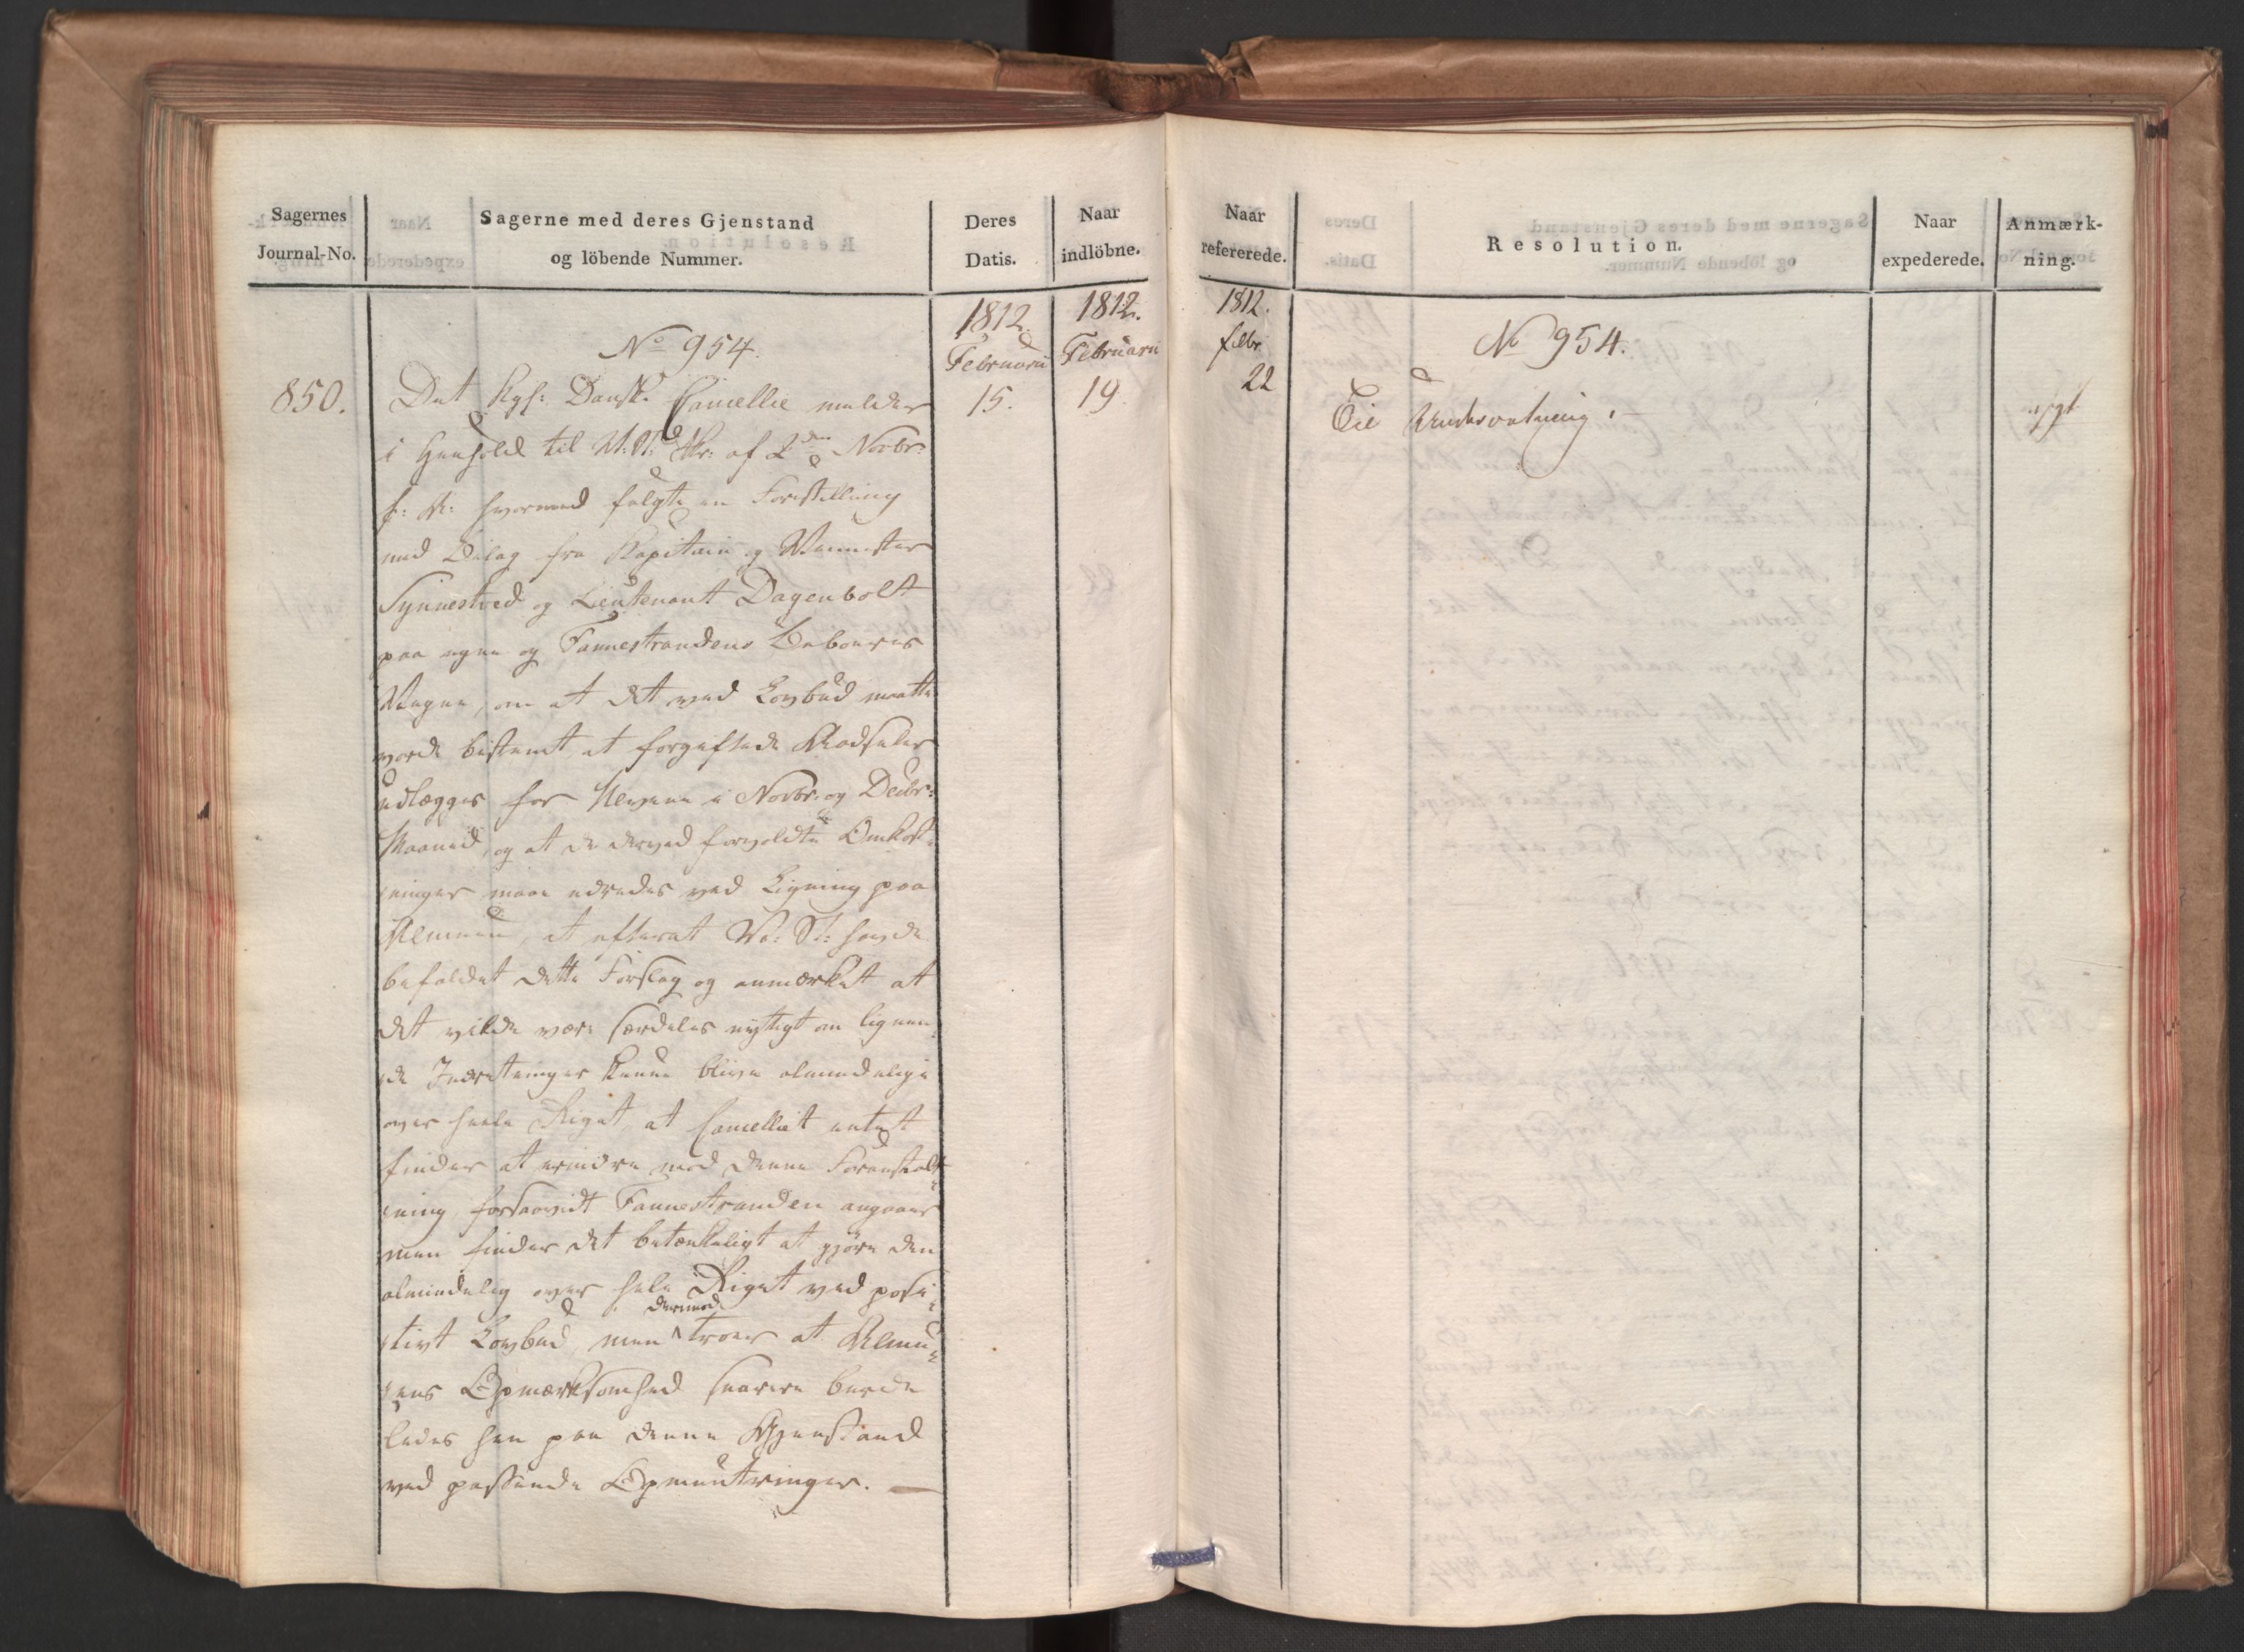 Sagernes
Journal-No.
Sagerne med deres Gjenstand
og löbende Nummer.
Deres
Datis.
Naar
indlöbne.
1812.
Februarii
1812.
Februarii
No 954.
850.
15.
19.
Det Kgl: Danske Cancellie melder
i Henhold til Skr: af 2den Novbr:
f: A: hvormed fulgte en Forestilling
med Bilag fra Kapitain og
Synnestved og Lieutenant Dagenbolt
paa egne og Fannestrandens Beboeres
Vegne, om at det ved Lovbud maatte
vorde bestemt, at forgiftede Aadseler
udlægges for Ulvene i Novbr: og Decbr:
Maaned, og at de derved forvoldte Omkost-
ninger maae udredes ved Ligning paa
Almuen, at efterat havde
befaldet dette Forslag og anmærket at
det vilde være særdeles nyttigt om lignen-
de Indretninger kunne blive almindelige
over heele Riget, at Cancelliet intet
finder at erindre mod denne Foranstalt-
ning, forsaavidt Fannestranden angaaer
men finder det betænkeligt at gjöre den
almindelig over hele Riget ved posi-
tivt Lovbud, men derimod troer at Almu-
ens Opmærksomhed snarere burde
ledes hen paa denne Gjenstand
ved passende Opmuntringer. —
Naar
refererede.
Resolution.
Naar
expederede.
Anmærk-
ning.
1812.
Febr
22
No 954.
Til Underretning.